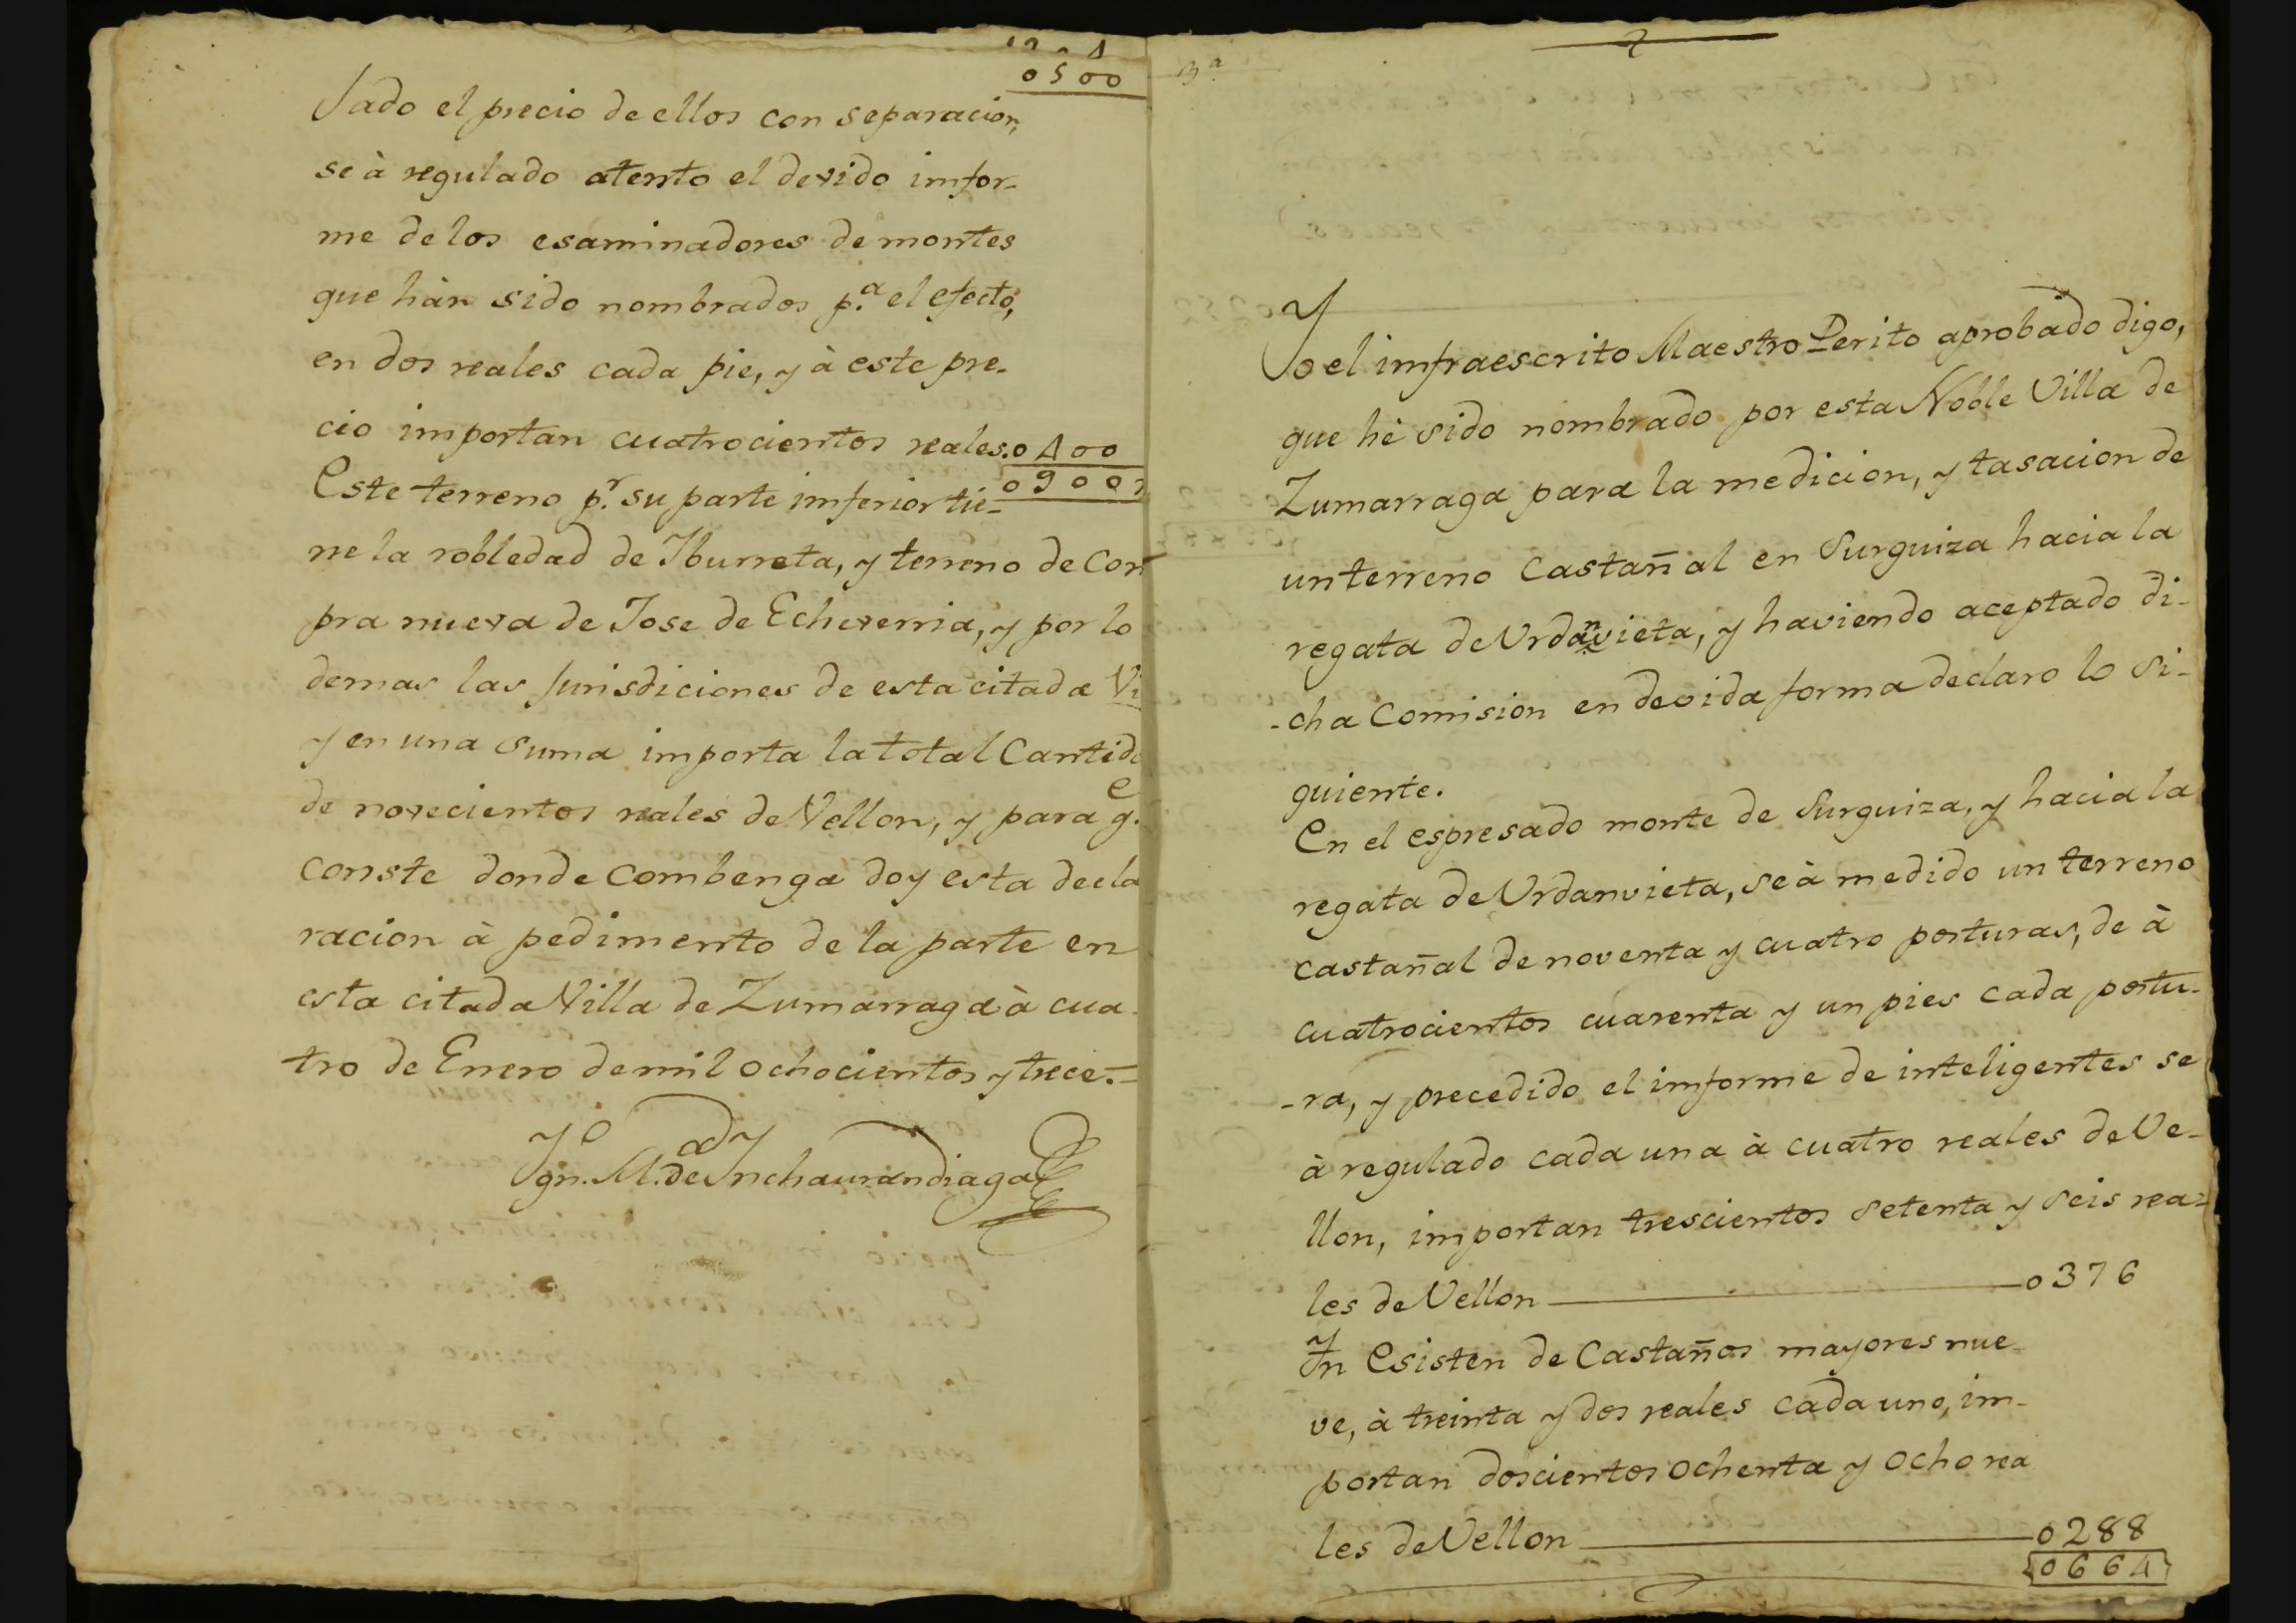 0500
sado el precio de ellos con separacion,
se à regulado atento el devido imfor-
me de los esaminadores de montes
que hàn sido nombrados p.ª el efecto,
en dos reales cada pie, y à este pre-
cio importan cuatrocientos reales. 0400
0900
Este terreno p.r su parte imferior tie-
ne la robledad de Iburreta, y terreno de Com
pra nueva de Jose de Echeverria, y por lo
demas las Jurisdiciones de esta citada Vi
y en una suma importa la total Cantida
de novecientos reales de Vellon, y para q.e
conste donde Combenga doy esta decla
racion à pedimento de la parte en
esta citada Villa de Zumarraga à cua-
tro de Enero de mil ochocientos y trece.=
Ygn.o M.a de Ynchaurandiaga
3ª
Yo el imfraescrito Maestro Perito aprobado digo,
que hè sido nombrado por esta Noble Villa de
Zumarraga para la medicion, y tasacion de
un terreno Castañal en Surguiza hacia la
regata de Vrdanvieta, y haviendo aceptado di-
-cha Comision en devida forma declaro lo si-
guiente.
En el espresado monte de Surguiza, y hacia la
regata de Vrdanvieta, se à medido un terreno
castañal de noventa y cuatro posturas, de à
cuatrocientos cuarenta y un pies cada postu-
-ra, y precedido el imforme de inteligentes se
à regulado cada una à cuatro reales de Ve-
llon, importan trescientos setenta y seis rea=
les de Vellon 0376
Yn Esisten de Castaños mayores nue-
ve, à treinta y dos reales cada uno, im-
portan doscientos ochenta y ocho rea
les de Vellon 0288
0664